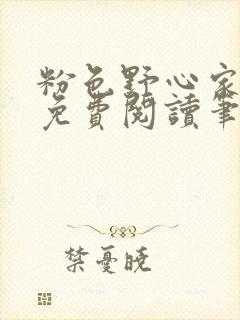 粉色野心家
免費閱讀筆
禁憂曉